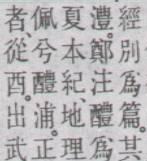 經別爲篇。其
澧。鄭注醴爲
夏本紀地理
佩兮醴浦。正
者、從酉出武